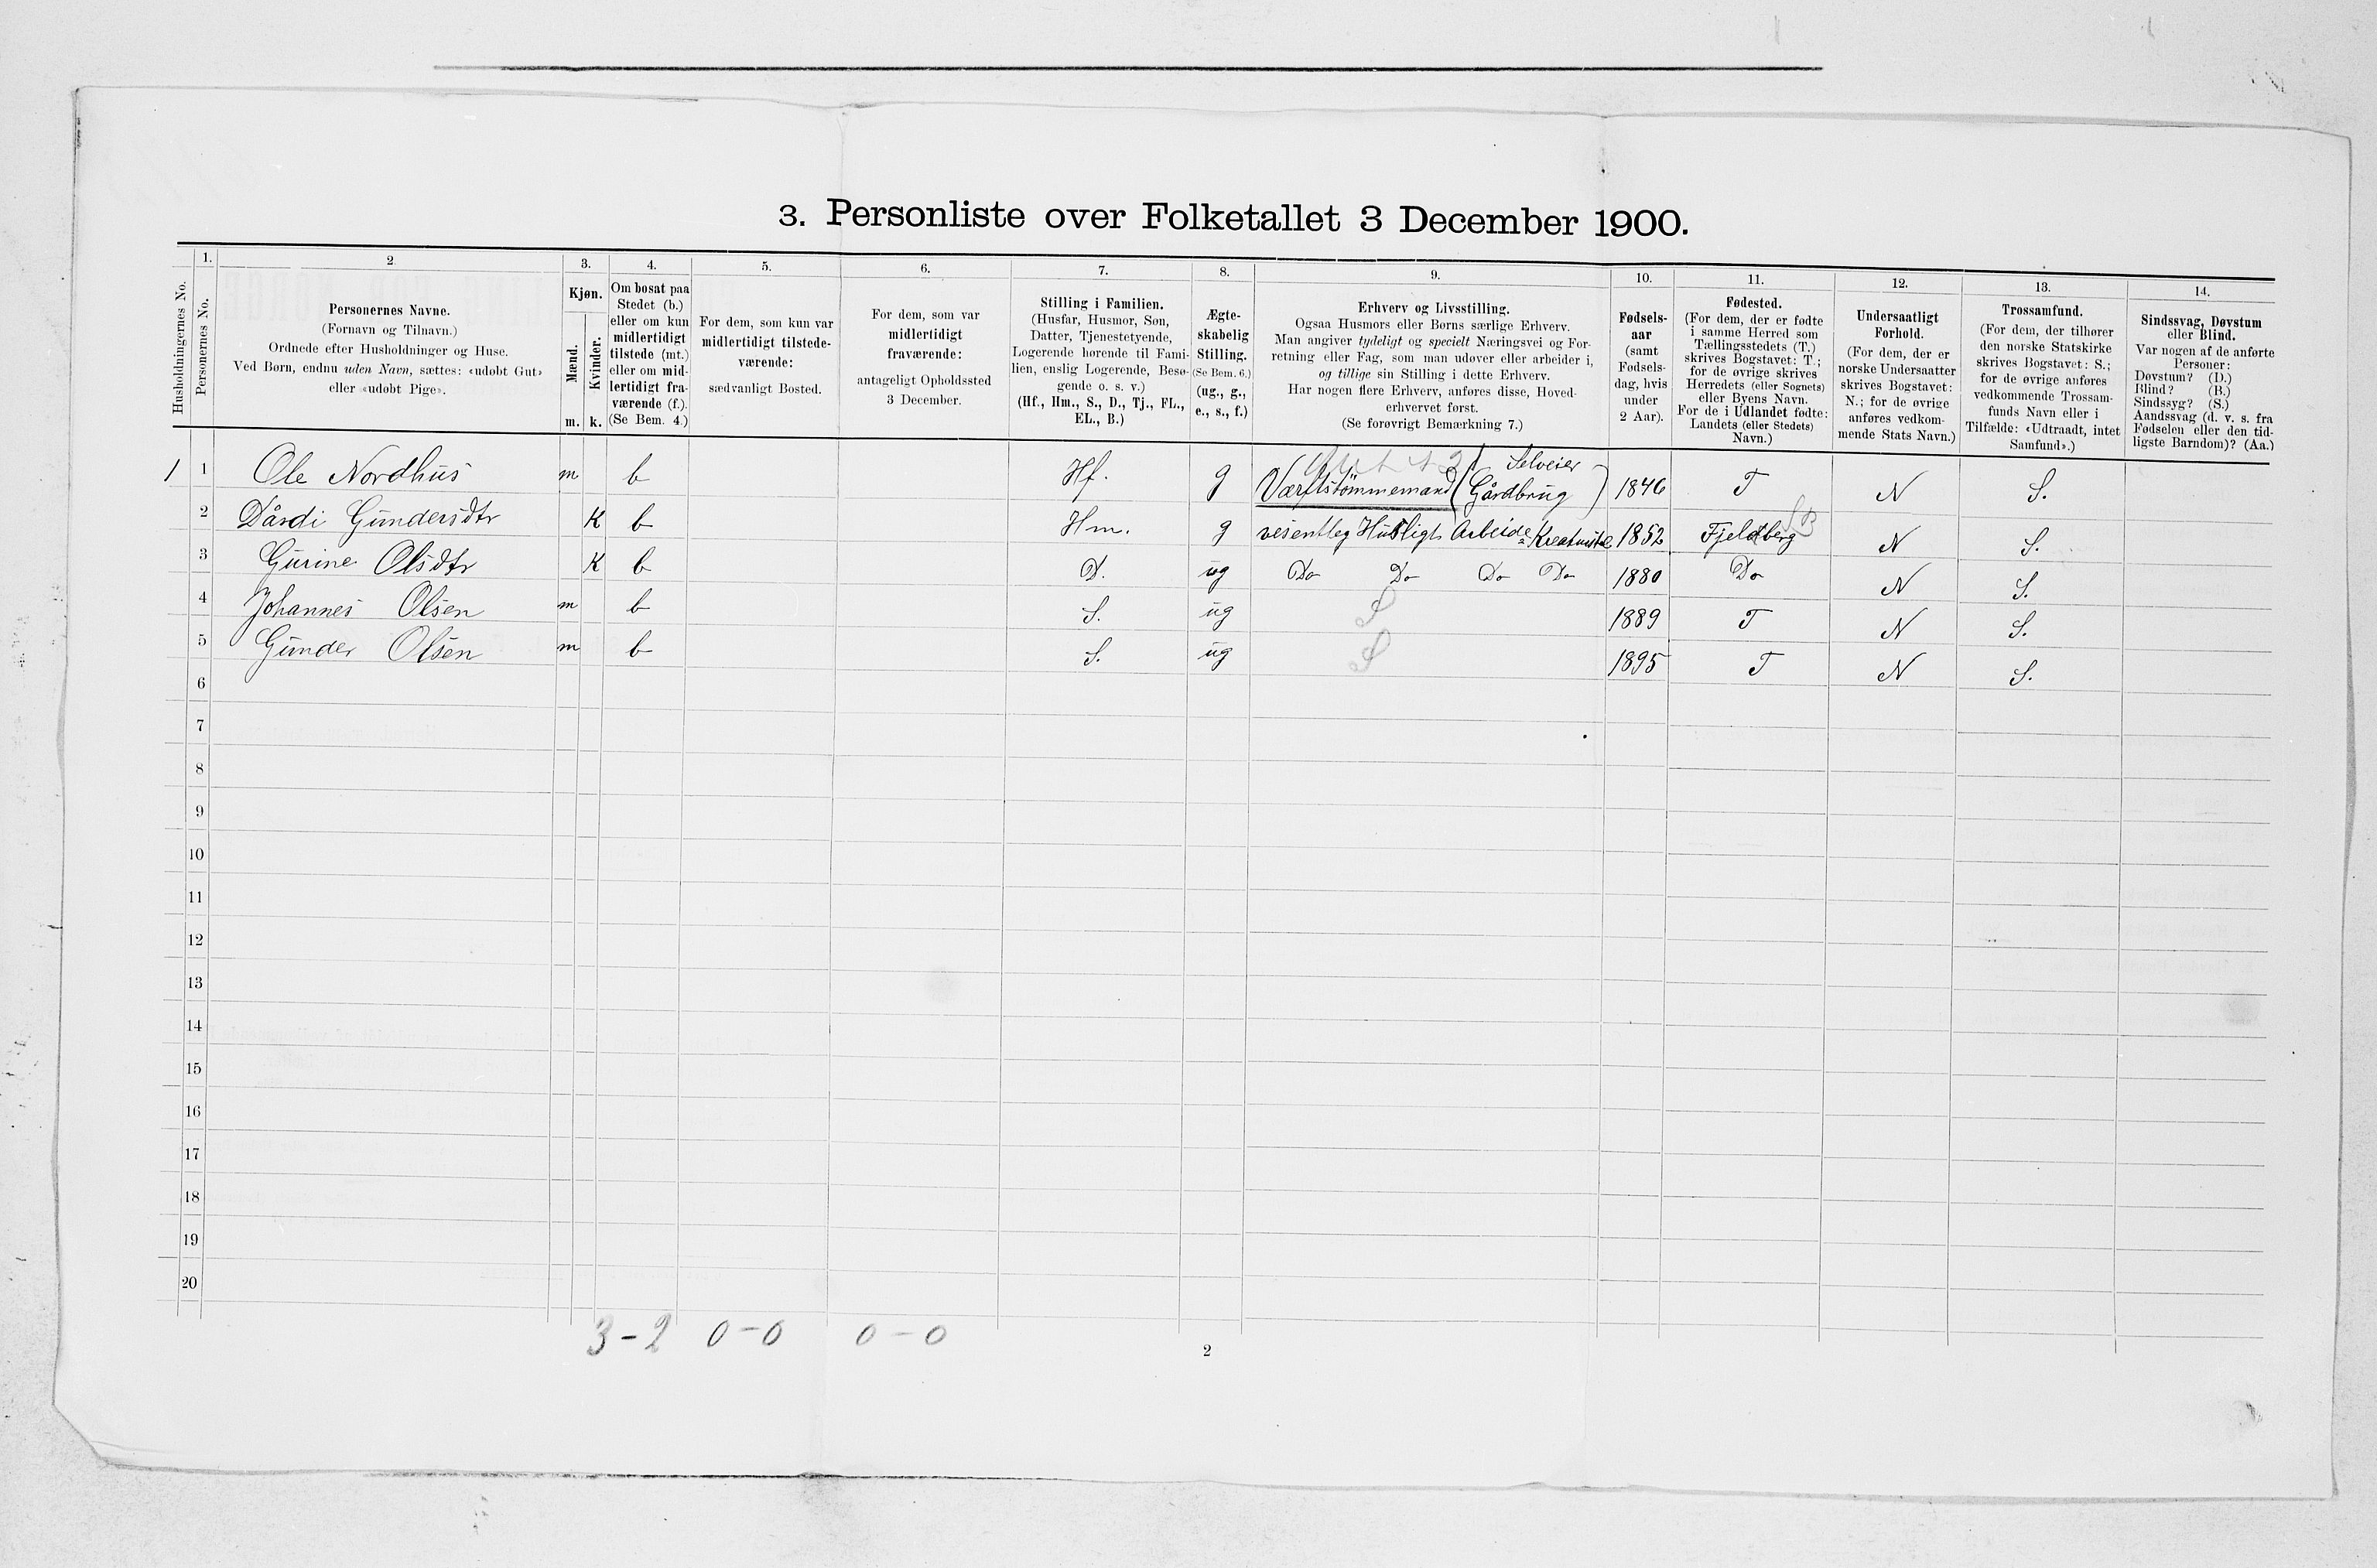 3. Personliste over Folketallet 3 December 1900.
1. 2 3. 4. 5. 6. 7. 8. 9. 10. 11. 12. 13. 14.
Husholdningernes No.
Personernes No.
Personernes Navne.
(Fornavn og Tilnavn.)
Ordnede efter Husholdninger og Huse.
Ved Børn, endnu uden Navn, sættes: «udøbt Gut»
eller «udøbt Pige».
Kjøn.
Mænd.
Kvinder.
m. k.
Om bosat paa
Stedet (b.)
eller om kun
midlertidigt
tilstede (mt.)
eller om mid-
lertidigt fra-
værende (f.).
(Se Bem. 4.)
For dem, som kun var
midlertidigt tilstede-
værende:
sædvanligt Bosted.
For dem, som var
midlertidigt
fraværende:
antageligt Opholdssted
3 December.
Stilling i Familien.
(Husfar, Husmor, Søn,
Datter, Tjenestetyende,
Logerende hørende til Fami-
lien, enslig Logerende, Besø-
gende o. s. v.)
(Hf., Hm., S., D., Tj., FL.,
EL., B.)
Ægte-
skabelig
Stilling.
(Se Bem. 6.)
(ug., g.,
e., s., f.)
Erhverv og Livsstilling.
Ogsaa Husmors eller Børns særlige Erhverv.
Man angiver tydeligt og specielt Næringsvei og For-
retning eller Fag, som man udøver eller arbeider i,
og tillige sin Stilling i dette Erhverv.
Har nogen flere Erhverv, anføres disse, Hoved-
erhvervet først.
(Se forøvrigt Bemærkning 7.)
Fødsels-
aar
(samt
Fødsels-
dag, hvis
under
2 Aar).
Fødested.
(For dem, der er fødte
i samme Herred som
Tællingsstedets (T.)
skrives Bogstavet: T.;
for de øvrige skrives
Herredets (eller Sognets)
eller Byens Navn.
For de i Udlandet fødte:
Landets (eller Stedets)
Navn.)
Undersaatligt
Forhold.
(For dem, der er
norske Undersaatter
skrives Bogstavet:
N.; for de øvrige
anføres vedkom-
mende Stats Navn.)
Trossamfund.
(For dem, der tilhører
den norske Statskirke
skrives Bogstavet: S.;
for de øvrige anføres
vedkommende Trossam-
funds Navn eller i
Tilfælde: «Udtraadt, intet
Samfund».)
Sindssvag, Døvstum
eller Blind.
Var nogen af de anførte
Personer:
Døvstum? (D.)
Blind? (B.)
Sindssyg? (S.)
Aandssvag (d. v. s. fra
Fødselen eller den tid-
ligste Barndom)? (Aa.)
1 1 Ole Nordhus m b Hf. g Værftstömmemand (Selveier Gårdbrug) 1846 T N S.
2 Dårdi Gundersdtr K b Hm. g vesentleg Husligt Arbeide Kreaturstel 1852 Fjeldberg N S.
3 Gurine Olsdtr K b D. ug Do Do Do Do 1880 Do N S.
4 Johannes Olsen m b S. ug S 1889 T N S.
5 Gunder Olsen m b S. ug S 1895 T N S.
6
7
8
9
10
11
12
13
14
15
16
17
18
19
20
3-2 0-0 0-0
2